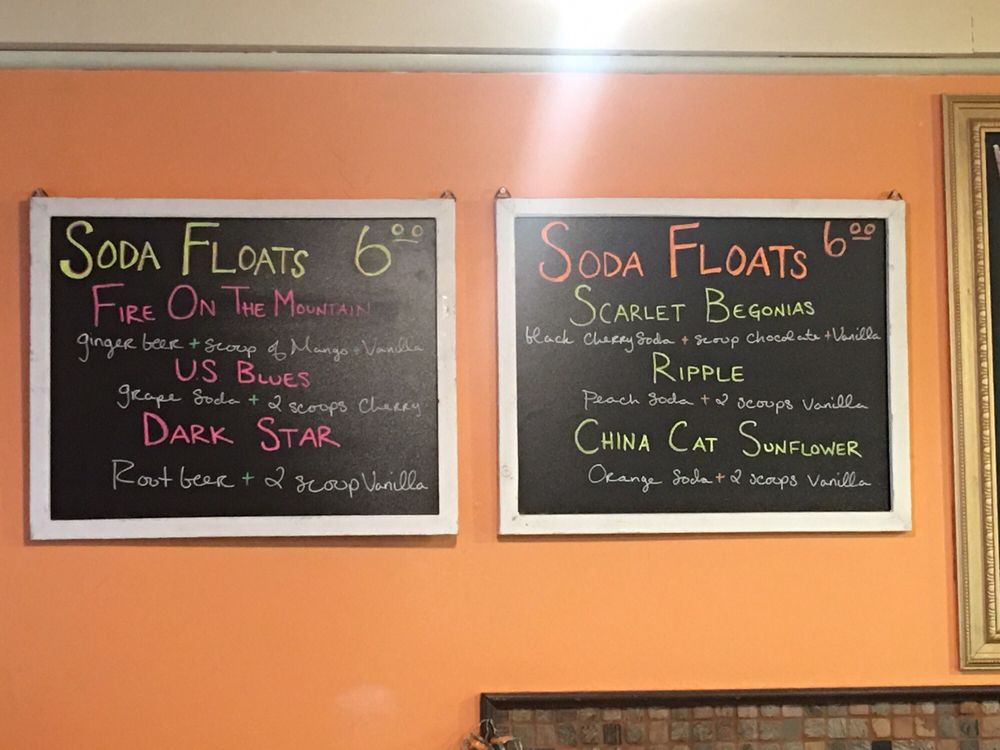 SODA FLOATS 6⁰⁰
FIRE ON THE MOUNTAIN
ginger beer + scoop of Mango + Vanilla
U.S BLUES
grape Soda + 2 scoops Cherry
DARK STAR
Root beer + 2 scoop Vanilla
SODA FLOATS 6⁰⁰
SCARLET BEGONIAS
black Cherry Soda + scoup chocolate + Vanilla
RIPPLE
Peach Soda + 2 scoups Vanilla
CHINA CAT SUNFLOWER
Orange Soda + 2 scoops Vanilla